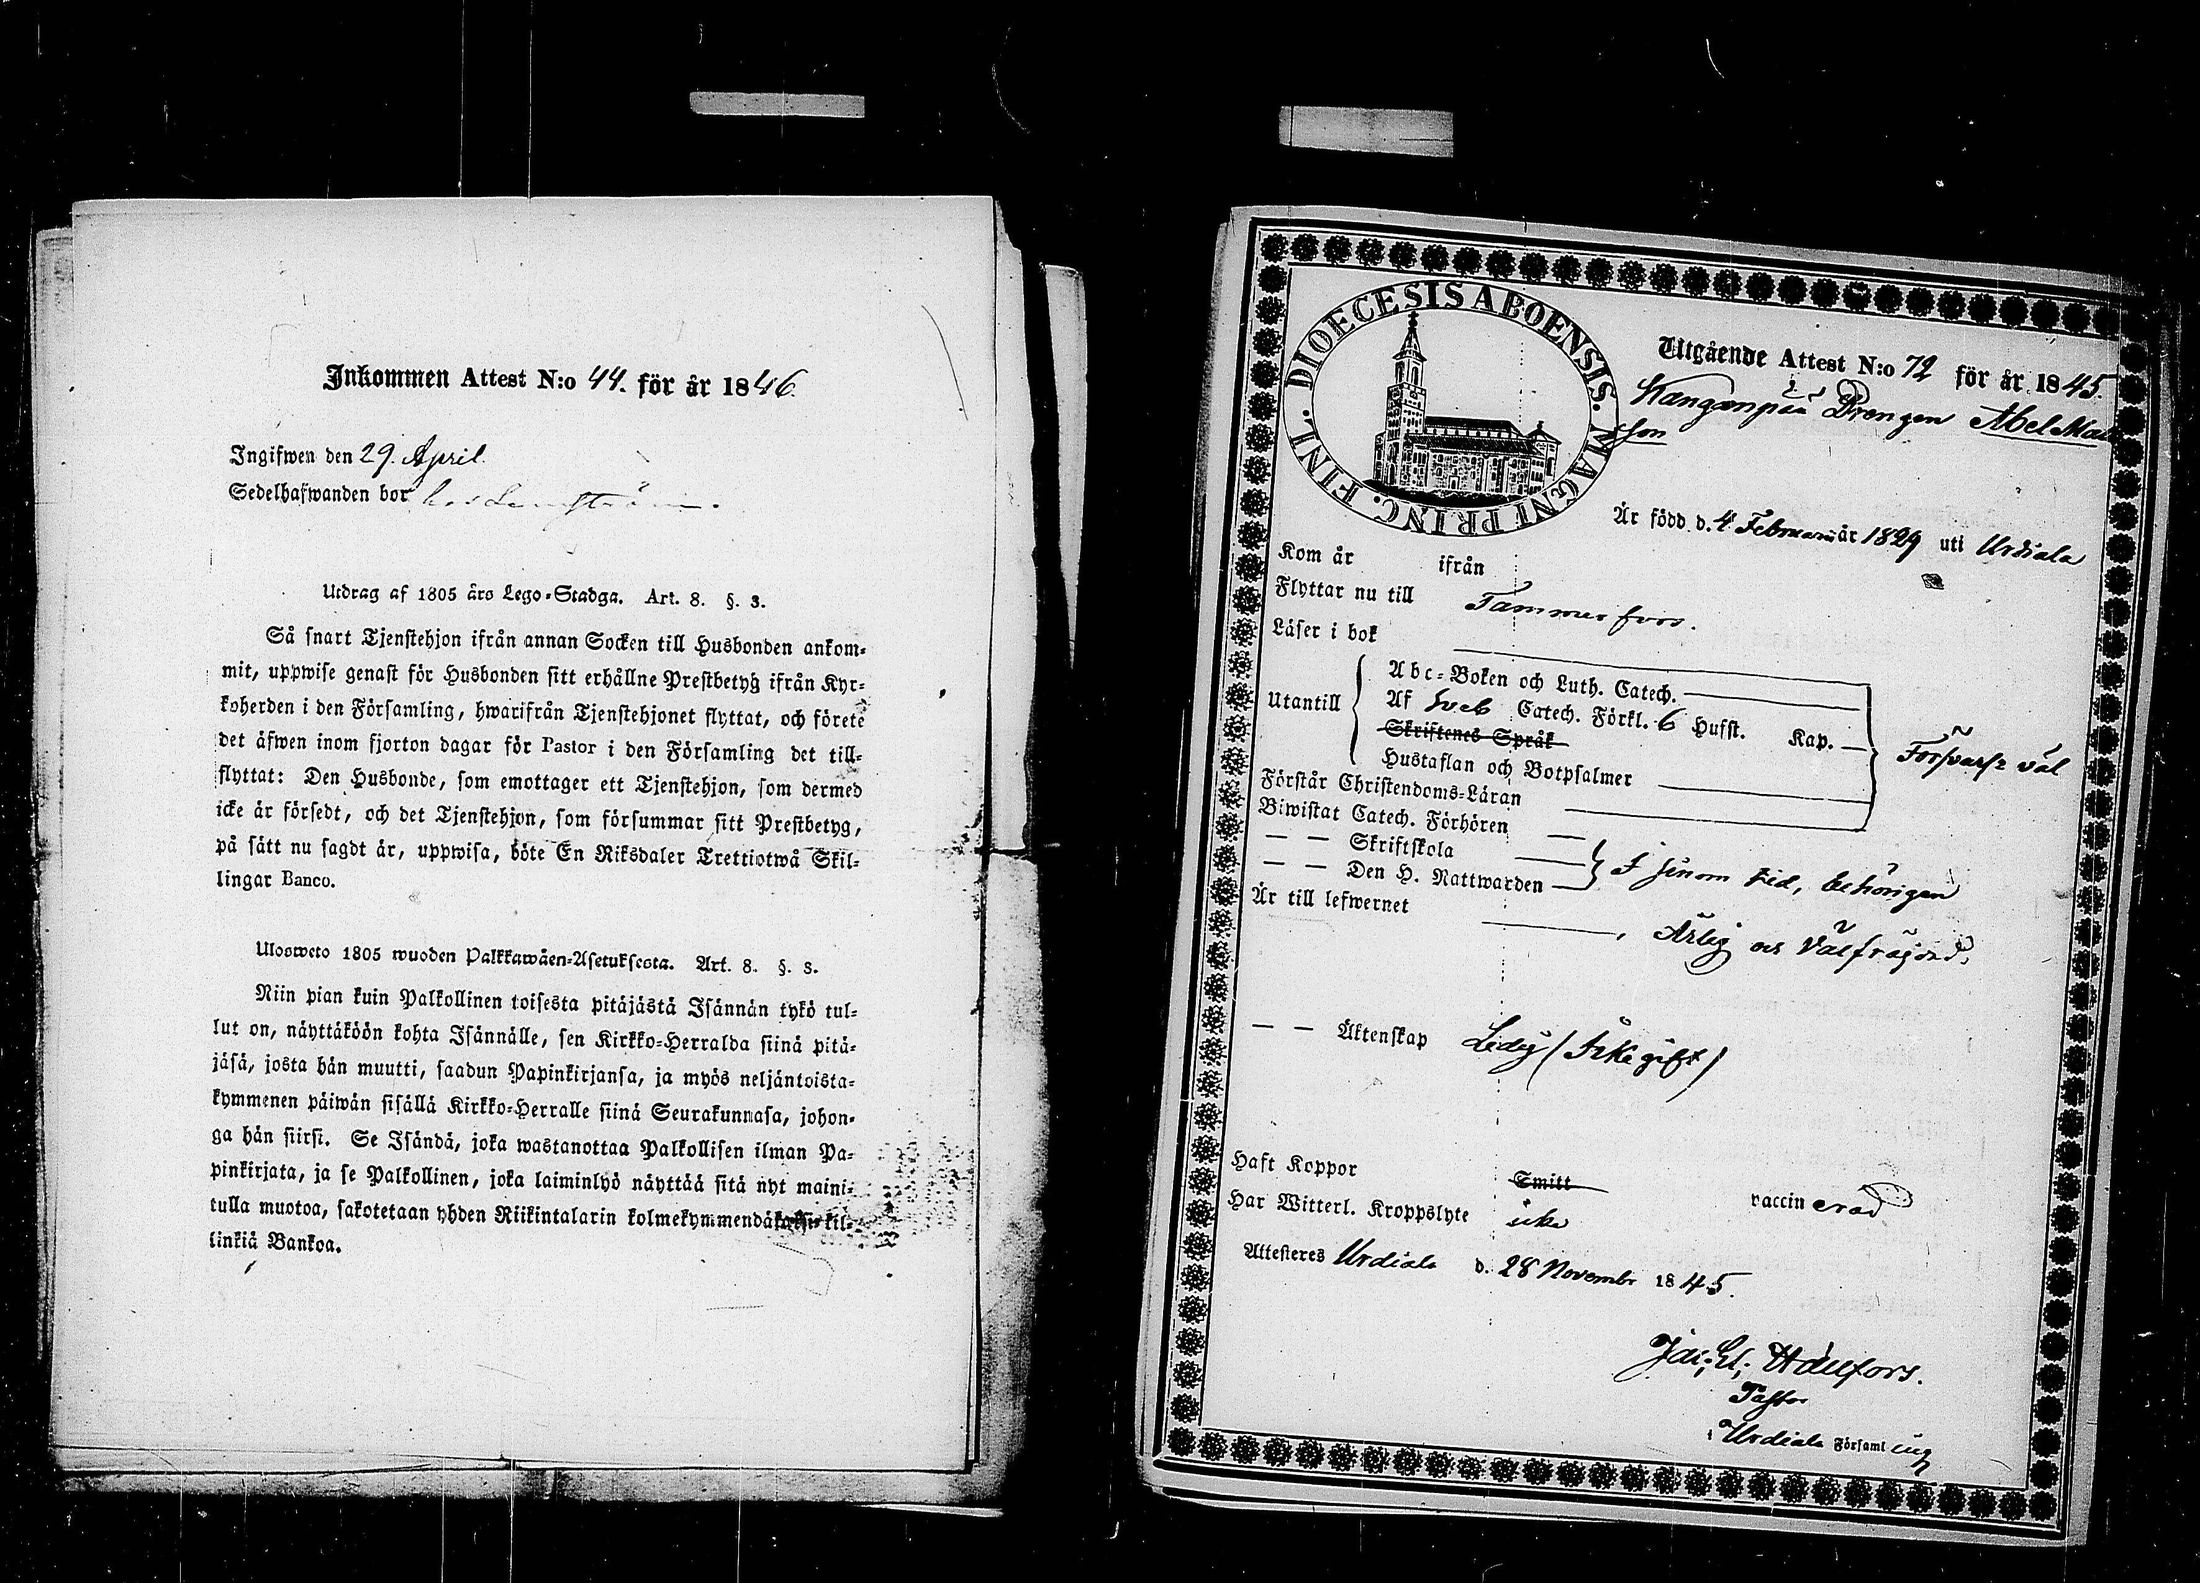 Inkommen Attest N:o 44. för år 1846.
Ingifwen den 29. April.
Sedelhafwanden bor hos
Utdrag af 1805 års Lego-Stadga. Art. 8. §. 3.
Så snart Tjenstehjon ifrån annan Socken till Husbonden ankom-
mit, uppwise genast för Husbonden sitt erhållne Prestbetyg ifrån Kyr-
koherden i den Församling, hwarifrån Tjenstehjonet flyttat, och förete
det äfwen inom fjorton dagar för Pastor i den Församling det till-
flyttat: Den Husbonde, som emottager ett Tjenstehjon, som dermed
icke är försedt, och det Tjenstehjon, som försummar sitt Prestbetyg,
på sätt nu sagdt är, uppwisa, böte En Riksdaler Trettiotwå Skil-
lingar Banco.
Ulosweto 1805 wuoden Palkkawäen-Asetuksesta. Art. 8. §. 3.
Niin pian kuin Palkollinen toisesta pitäjästä Isännän tykö tul-
lut on, näyttäköön kohta Isännälle, sen Kirkko-Herralda siinä pitä-
jäsä, josta hän muutti, saadun Papinkirjansa, ja myös neljäntoista-
kymmenen päiwän sisällä Kirkko-Herralle siinä Seurakunnasa, johon-
ga hän siirsi. Se Isändä, joka wastanottaa Palkollisen ilman Pa-
pinkirjata, ja se Palkollinen, joka laiminlyö näyttää sitä nyt maini-
tulla muotoa, sakotetaan yhden Riikintalarin kolmekymmendäkaksi kil-
linkiä Bankoa.
DIOECESIS ABOENSIS. MAGNI PRINC. FINL.
Utgående Attest N:o 72 för år 1845.
Drengen Abel
son
Är född d. 4 Februarii år 1829 uti Urdiala
Kom år ifrån
Flyttar nu till Tammerfors.
Läser i bok
Utantill
Abc-Boken och Luth. Catech.
Af Sveb Catech. Förkl. 6 Hufst. Kap. —
Skriftenes Språk
Hustaflan och Botpsalmer
Försvarst väl
Förstår Christendoms-Läran
Biwistat Catech. Förhören
— — Skriftskola
— — Den H. Nattwarden
I sinom tid, behörigen
Är till lefwernet Ärlig och Välfrägdad.
— — Äktenskap Ledig (Icke gift)
Haft Koppor Smitt vaccinerad
Har Witterl. Kroppslyte icke
Attesteres Urdiala d. 28 Novembr 1845.
Pastor
i Urdiala Församling